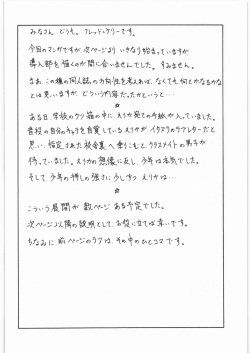 みなさん、どうも。フレッド・ケリーです。
今回のマンガですが、次ページより いきなり始まっていますが
導入部を描くのが間に合いませんでした。すみません。
まあ、この種の同人誌の方向性を考えれば、なくても何とかなるかな
とは思いますが、どういう内容だったかというと…
☆
ある日、学校のクツ箱の中に、えりか宛ての手紙が入っていました。
普段の自分のキャラを自覚している えりかが、イタズラのラブレターだと
思い、指定された校舎裏へ乗りこむと、クラスメイトの男子が
待っていました。えりかの想像に反し、少年は本気でした。
そして、少年の押しの強さに少しずつ えりかは…
☆
こういう展開が 数ページ ある予定でした。
次ページ以降の説明として、お役に立てば幸いです。
ちなみに 前ページのラフは、その中のひとコマです。